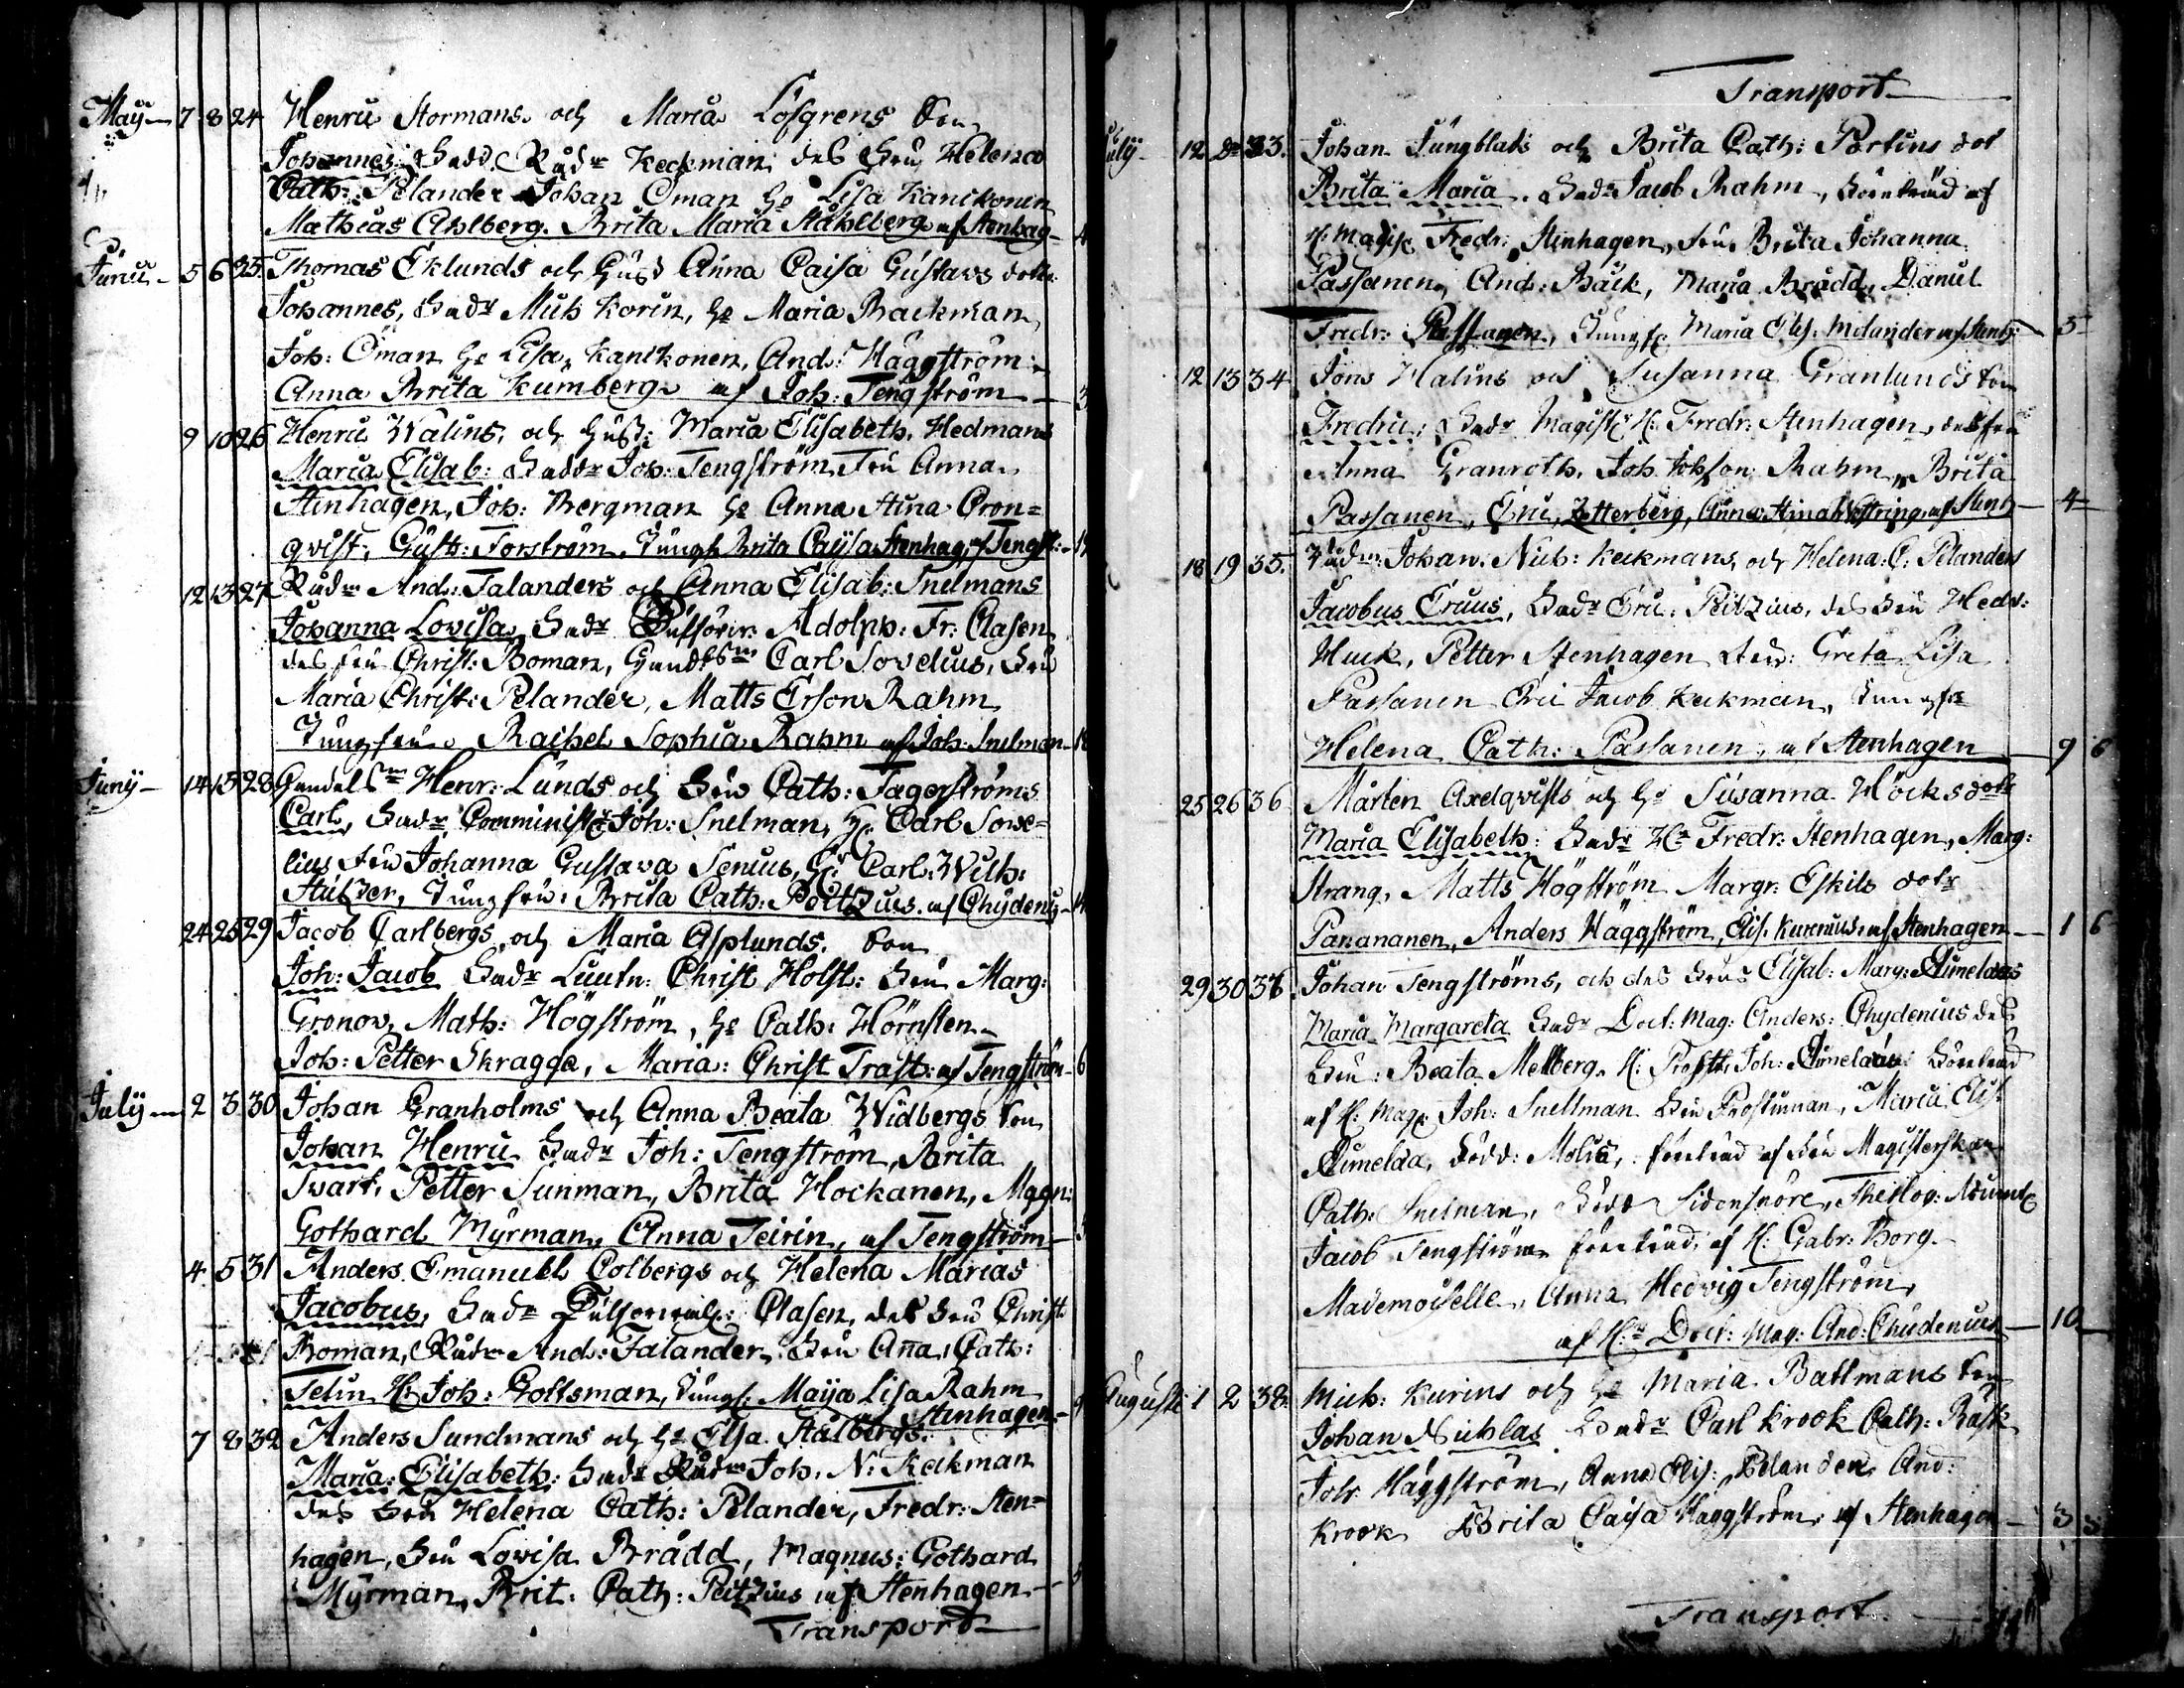 May 7 8 24 Henric Stormans och Maria Löfgrens Son
Johannes; Fadd. Rådm Keckman des Fru Helena
Cath: Pelander Johan Öman H Lisa Kanikonen
Mathias Ahlberg. Brita Maria Ståhlberg af Stenhag 4
Junii 5 6 25. Thomas Eklunds och Hust Anna Caisa Gustavs dotr
Johannes, Fadr Mich Korin, H Maria Backman
Joh: Öman H Lisa Kanikonen, And: Häggström
Anna Brita Kumberg af Joh: Tengström 3
9 10 26 Henric Walins, och Hust: Maria Elisabeth Hedmans
Maria Elisab: Faddr Joh: Tengström, Fru Anna
Stenhagen, Joh: Bergman H Anna Stina Cron=
qvist, Gust: Forström, Jungf Brita Cajsa Stenhag, af Tengst:
12 13 27 Rådm And: Falanders och Anna Elisab: Snelmans
Johanna Lovisa, Fadr Adolph: Fr: Clasen
des fru Christ: Boman, Handlsm Carl Sovelius, Fru
Maria Christ: Pelander, Matts Erson Rahm
Jungfru Rachel Sophia Rahm af Joh: Snelman
Juny 14 15 28 Handelsm Henr: Lunds och Fru Cath: Fagerströms
Carl, Fadr Comminist Joh: Snelman, H. Carl Sove=
lius Fru Johanna Gustava Senius, H. Carl Wilh:
Jungfru: Brita Cath: Peitzius. af Chydenius
24 25 29 Jacob Carlbergs och Maria Asplunds. Son
Joh: Jacob Fadr Lieutn: Christ Holst: Fru Marg:
Gronow, Math: Högström, H Cath: Hörnsten
Joh: Petter Skragge, Maria: Christ Trast: af Tengström 6
July 2 3 30 Johan Granholms och Anna Beata Widbergs Son
Johan Henric Fadr Joh: Tengström, Brita
Svart, Petter Sunman, Brita Hockanen, Magn:
Gothard Myrman, Anna Teirin, af Tengström
4 5 31 Anders Emanuel Colbergs och Helena Marias
Jacobus, Fadr Clasen, des Fru Christ
Boman, Rådm And: Falander, Fru Anna Cath:
Telin H: Joh: Holtsman, Jungf: Maja Lisa Rahm
Stenhagen
7 8 32 Anders Sundmans och H Elsa Stålbergs.
Maria: Elisabeth: Fadr Rådm Joh. N: Keckman
des Fru Helena Cath: Pelander, Fredr: Sten=
hagen, Fru Lovisa Brådd, Magnus: Gothard
Myrman, Brit: Cath: Peitzius af Stenhagen
Transport
Transport
July 12 33. Johan Ljungblads och Brita Cath: Portins dot
Brita Maria. Fadr Jacob Rahm, af
H: Magist Fredr: Stenhagen, Fru Brita Johanna
Passanen, And: Bäck, Maria Brådd, Daniel
Fredr: Passanen, Jungfr Maria Elis. Melander af Stenh: 5
12 13 34 Jöns Halins och Susanna Granlunds Son
Fredric, Fadr Magist H: Fredr: Stenhagen, des fru
Anna Granroth, Joh. Johson Rahm, Brita
Passanen, Eric Zetterberg, Anna Stina Wettring, af Stenh 4
18 19 35. Rådm: Johan. Nich: Keckmans, och Helena: C: Pelanders
Jacobus Ericus, Fadr Eric: Peitzius, des Fru Hedv:
Huck, Petter Stenhagen Greta Lisa
Passanen Eric Jacob Keckman, Jungfr
Helena Cath: Passanen, af Stenhagen 9 6
25 26 36 Mårten Axelqvists och H Susanna Höcks dotr
Maria Elisabeth: Fadr Hr Fredr: Stenhagen, Marg:
Strang, Matts Högström Margr: Eskils dotr
Panananen, Anders Häggström, Elis. af Stenhagen 1 6
29 30 37 Johan Tengströms, och des Frus Elisab: Marg: Aimelaeus
Maria Margareta Fadr Doct: Mag: Anders: Chydenius des
Fru: Beata Mellberg. H: Prosten Joh: Aimelaeus:
af H: Mag: Joh: Snellman Fru Prostinnan, Maria Elis
Aimelaea, född: Molis, förträd af Fru Magisterskan
Cath: Snelman, född Sidensnöre,
Jacob Tengström förträd, af H: Gabr: Borg.
Mademoiselle, Anna Hedvig Tengström,
af H:r Doct: Mag: And: Chydenius 10
Augusti 1 2 38. Mich: Kurins och H Maria Battmans Son
Johan Nichlas Fadr Carl Krook Cath: Rask
Joh Häggström, Anna Elis: Pelander And:
Krook Brita Caisa Häggström af Stenhagen 3
Transport